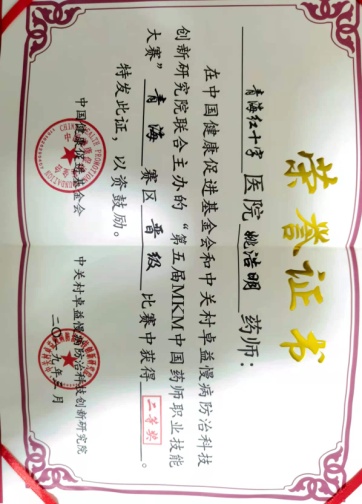 荣誉证书
青海红十字 医院 姚浩明 药师：
在中国健康促进基金会和中关村卓益慢病防治科技
创新研究院联合主办的“第五届MKM中国药师职业技能
大赛”青海赛区晋级比赛中获得二等奖。
特发此证，以资鼓励。
中国健康促进基金会 中关村卓益慢病防治科技创新研究院